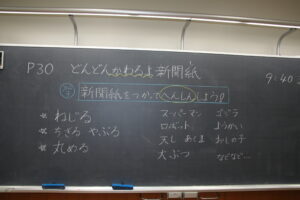 P30 どんどんかわるよ新聞紙
9:40
新聞紙をつかってへんしんしよう!!
* ねじる
* ちぎる やぶる
* 丸める
スーパーマン ゴジラ
ロボット ようかい
天し あくま おしの子
犬 ぶつ などなど…